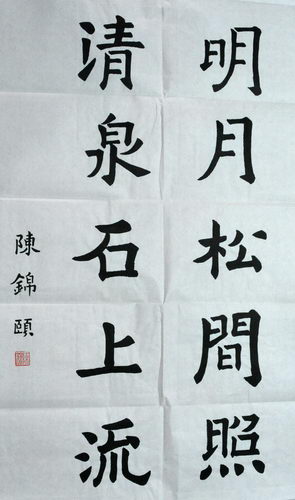 明月松間照
清泉石上流
陳錦頤